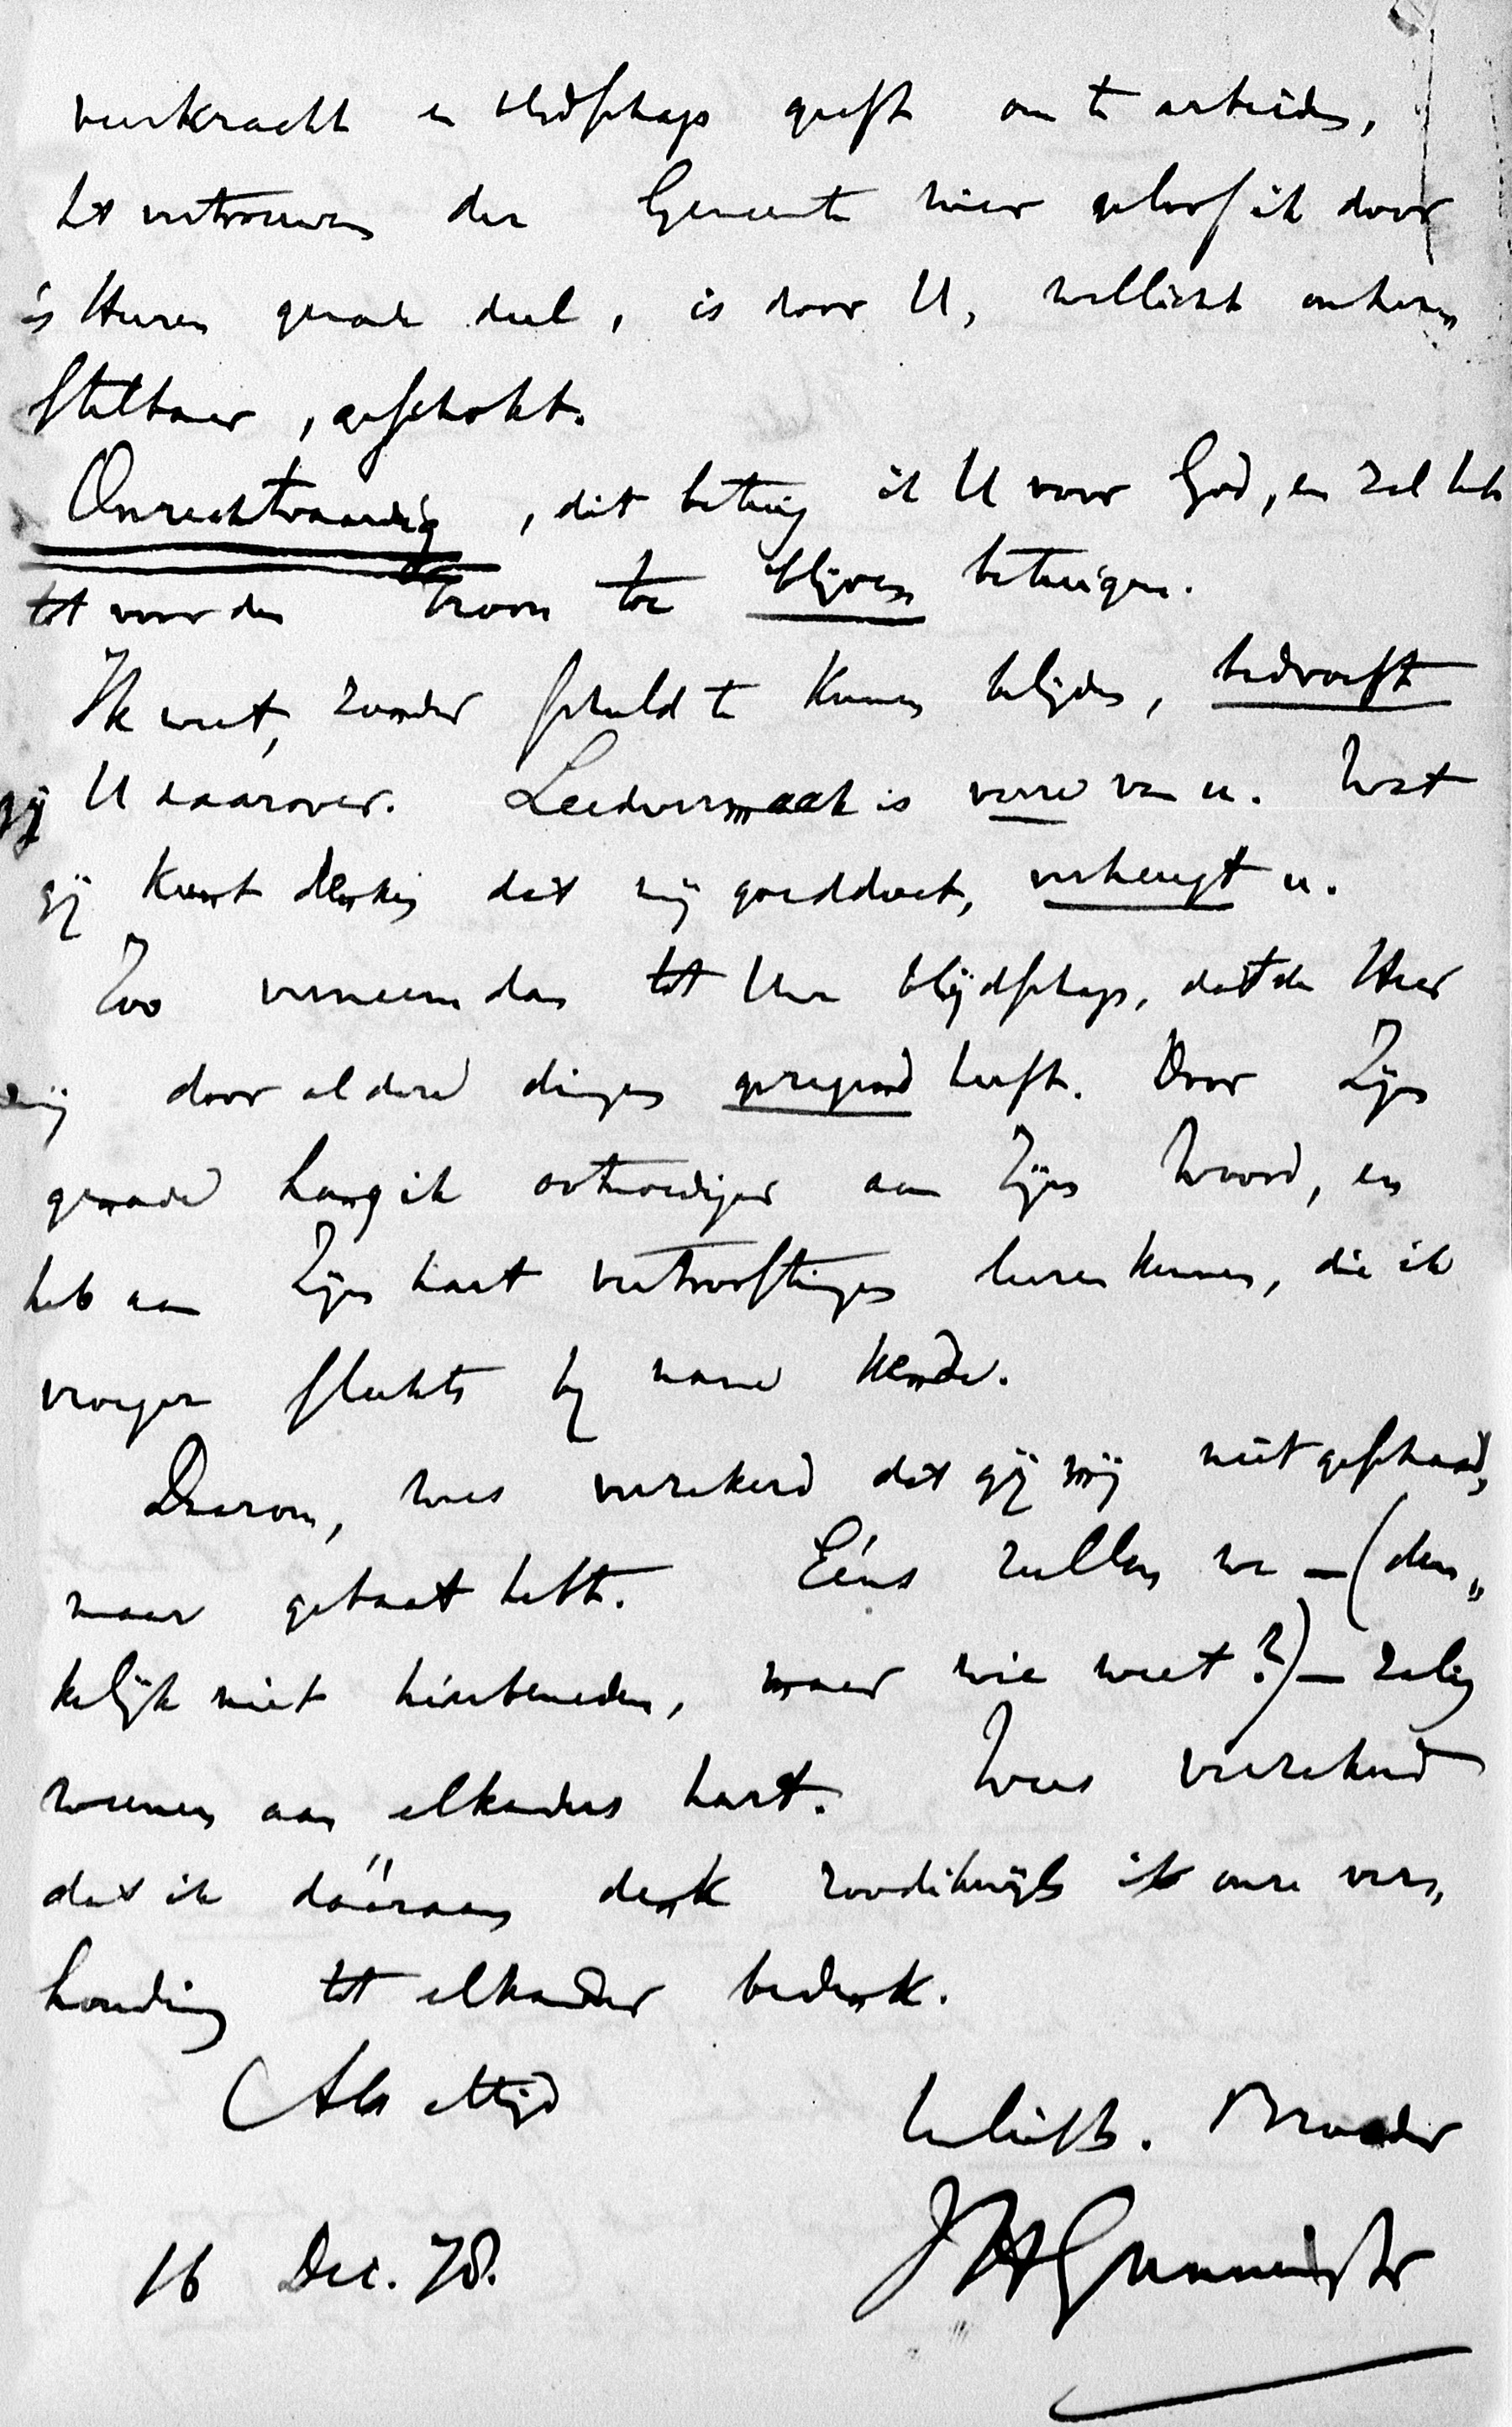 veerkracht en blijdschap geeft om te arbeiden,
het vertrouwen der Gemeente hier geloof ik door
's Heeren genade deel, is door U, wellicht onhers
stelbaar, geschokt.
Onrechtvaardig, dit betuig ik U voor God, en zal het
tot voor den troon toe blijven betuigen.
Ik weet, zonder schuld te kunnen belijden, bedroeft
gij U daarover. Leedvermaak is verre van u. Wat
gij kunt denken dat mij goeddoet, verheugt u.
Zoo verneem dan tot Uwe blijdschap, dat de Heer
mij door al deze dingen gezegend heeft. Door Zijn
genade hang ik ootmoediger aan Zijn Woord, en
heb aan Zijn hart vertroostingen leeren kennen, die ik
vroeger slechts bij name kende.
Daarom, wees verzekerd dat gij mij niet geschaad,
maar gebaat hebt. Eéns zullen we – (den„
kelijk niet hierbeneden, maar wie weet?) – zalig
weenen aan elkanders hart. Wees verzekerd
dat ik dááraan denk zoodikwijls ik onze ver„
houding tot elkander bedenk.
Als altijd
liefh. Broeder
16 Dec. 78.
JHGunning Jr